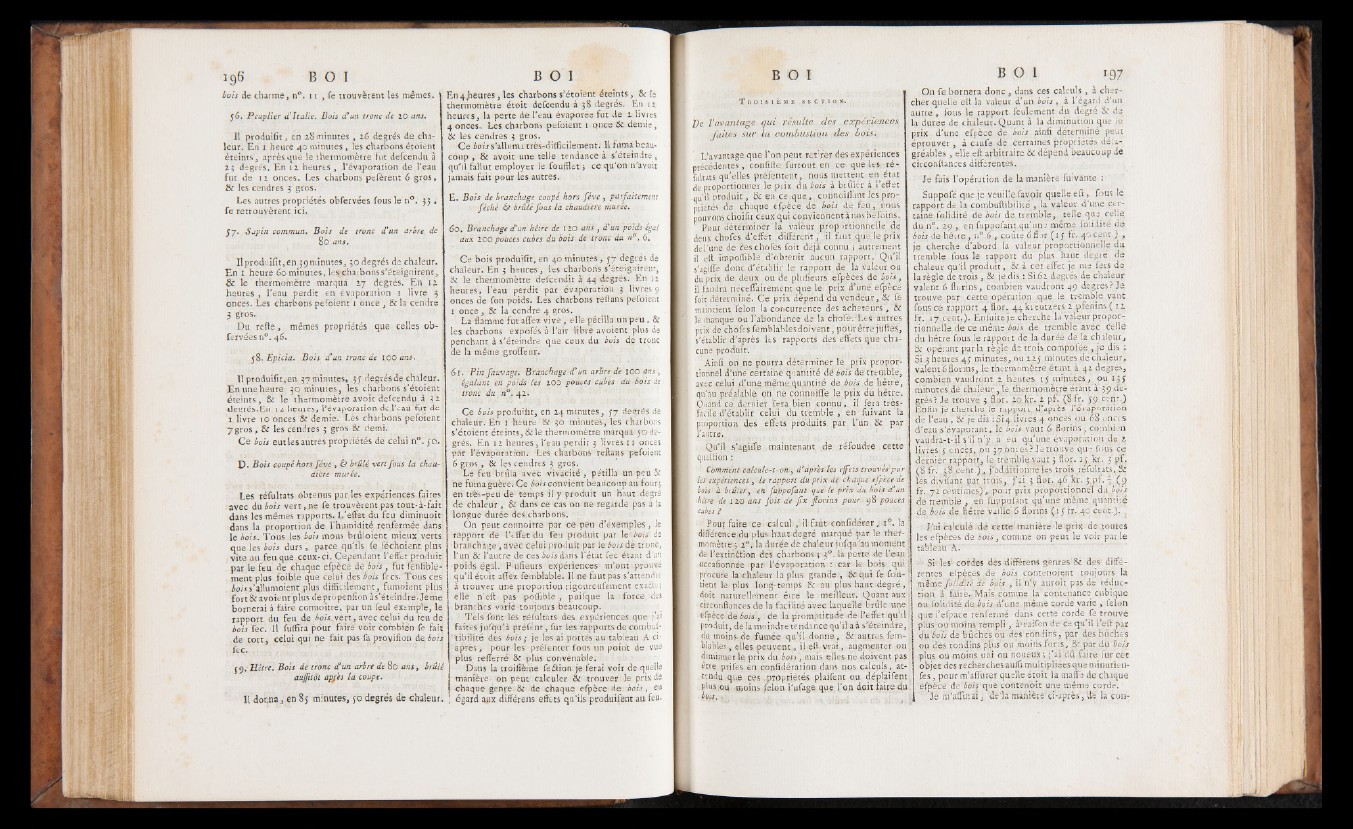 196 B O I
bois de charme, n°. 11, se trouvèrent les mêmes.
56. Peuplier d'Italie. Bois d'un tronc de 20 ans.
Il produisit, en 28 minutes, 26 degrés de cha-
leur. En 1 heure 40 minutes, les charbons étoient
éteints, après que le thermomètre fut descendu à
23 degrés. En 12 heures, l'évaporation de l'eau
fut de 12 onces. Les charbons pesèrent 6 gros,
& les cendres 3 gros.
Les autres propriétés observées sous le n°. 33,
se retrouvèrent ici.
57. Sapin commun. Bois de tronc d'un arbre de
80 ans.
Il produisit, en 39 minutes, 30 degrés de chaleur.
En 1 heure 60 minutes, les charbons s'éteignirent,
& le thermomètre marqua 27 degrés. En 12
heures, l'eau perdit en évaporation 1 livre 3
onces. Les charbons pesoient 1 once, & la cendre
3 gros.
Du reste, mêmes propriétés que celles ob-
servées n°. 46.
58. Epicia. Bois d'un tronc de 100 ans.
Il produisit, en 37 minutes, 35 degrés de chaleur.
En une heure 30 minutes, les charbons s'étoient
éteints, & le thermomètre avoit descendu à 32
degrés. En 12 heures, l'évaporation de l'eau fut de
1 livre 10 onces & demie. Les charbons pesoient
7 gros, & les cendres 3 gros & demi.
Ce bois eut les autres propriétés de celui n°. 50.
D. Bois coupé hors sève, & brûlé vert sous la chau-
dière murée.
Les résultats obtenus par les expériences faites
avec du bois vert, ne se trouvèrent pas tout-à-fait
dans les mêmes rapports. L'effet du feu diminuoit
dans la proportion de l'humidité renfermée dans
le bois. Tous les bois mous brûloient mieux verts
que les bois durs, parce qu'ils se séchoient plus
vîte au feu que ceux-ci. Cependant l'effet produit
par le feu de chaque espèce de bois, fut sensible-
ment plus foible que celui des bois secs. Tous ces
bois s'allumoient plus difficilement, fumoient plus
fort & avoient plus de propension à s'éteindre. Je me
bornerai à faire connoître, par un seul exemple, le
rapport du feu de bois vert, avec celui du feu de
bois sec. Il suffira pour faire voir combien se fait
de tort, celui qui ne fait pas sa provision de bois
sec.
59. Hêtre. Bois de tronc d'un arbre de 80 ans, brûlé
aussitôt après la coupe.
Il donna, en 85 minutes, 50 degrés de chaleur.
B O I
En 4 heures, les charbons s'étoient éteints, & le
thermomètre étoit descendu à 38 degrés. En 12
heures, la perte de l'eau évaporée fut de 2 livres
4 onces. Les charbons pesoient 1 once & demie,
& les cendres 3 gros.
Ce bois s'alluma très-difficilement. Il fuma beau-
coup, & avoit une telle tendance à s'éteindre,
qu'il fallut employer le soufflet; ce qu'on n'avoit
jamais fait pour les autres.
E. Bois de branchage coupé hors sève, parfaitement
séché & brûlé sous la chaudière murée.
60. Branchage d'un hêtre de 120 ans, d'un poids égal
aux 100 pouces cubes du bois de tronc du n°. 6.
Ce bois produisit, en 40 minutes, 57 degrés de
chaleur. En 3 heures, les charbons s'éteignirent,
& le thermomètre descendit à 44 degrés. En 12
heures, l'eau perdit par évaporation 3 livres 9
onces de son poids. Les charbons restans pesoient
1 once, & la cendre 4 gros.
La flamme fut assez vive, elle pétilla un peu, &
les charbons exposés à l'air libre avoient plus de
penchant à s'éteindre que ceux du bois de tronc
de la même grosseur.
61. Pin sauvage. Branchage d'un arbre de 100 ans,
égalant en poids les 100 pouces cubes du bois de
tronc du n°. 42.
Ce bois produisit, en 24 minutes, 57 degrés de
chaleur. En 1 heure & 30 minutes, les charbons
s'étoient éteints, & le thermomètre marqua 50 de-
grés. En 12 heures, l'eau perdit 3 livres 11 onces
par l'évaporation. Les charbons restans pesoient
6 gros, & les cendres 3 gros.
Le feu brûla avec vivacité, pétilla un peu &
ne fuma guère. Ce bois convient beaucoup au four;
en très-peu de temps il y produit un haut degré
de chaleur, & dans ce cas on ne regarde pas à la
longue durée des charbons.
On peut connoître par ce peu d'exemples, le
rapport de l'effet du feu produit par le bois de
branchage, avec celui produit par le bois de tronc,
l'un & l'autre de ces bois dans l'état sec étant d'un
poids égal. Plusieurs expériences m'ont prouvé
qu'il étoit assez semblable. Il ne faut pas s'attendre
à trouver une proportion rigoureusement exacte;
elle n'est pas possible, puisque la force des
branches varie toujours beaucoup.
Tels sont les résultats des expériences que j'ai
faites jusqu'à présent, sur les rapports de combus-
tibilité des bois; je les ai portés au tableau A ci-
après, pour les présenter sous un point de vue
plus resserré & plus convenable.
Dans la troisième section je ferai voir de quelle
manière on peut calculer & trouver le prix de
chaque genre & de chaque espèce de bois, eu
égard aux différens effets qu'ils produisent au feu.
B O I
TROISIÈME SECTION.
De l'avantage qui résulte des expériences
faites sur la combustion des bois.
L'avantage que l'on peut retirer des expériences
précédentes, consiste surtout en ce que les ré-
sultats qu'elles présentent, nous mettent en état
de proportionner le prix du bois à brûler à l'effet
qu'il produit, & en ce que, connoissant les pro-
priétés de chaque espèce de bois de feu, nous
pouvons choisir ceux qui conviennent à nos besoins.
Pour déterminer la valeur proportionnelle de
deux choses d'effet différent, il faut que le prix
de l'une de ces choses soit déjà connu; autrement
il est impossible d'obtenir aucun rapport. Qu'il
s'agisse donc d'établir le rapport de la valeur ou
du prix de deux ou de plusieurs espèces de bois,
il faudra nécessairement que le prix d'une espèce
soit déterminé. Ce prix dépend du vendeur, & se
maintient selon la concurrence des acheteurs, &
le manque ou l'abondance de la chose. Les autres
prix de choses semblables doivent, pour être justes,
s'établir d'après les rapports des effets que cha-
cune produit.
Ainsi on ne pourra déterminer le prix propor-
tionnel d'une certaine quantité de bois de tremble,
avec celui d'une même quantité de bois de hêtre,
qu'au préalable on ne connoisse le prix du hêtre.
Quand ce dernier sera bien connu, il sera très-
facile d'établir celui du tremble, en suivant la
proportion des effets produits par l'un & par
l'autre.
Qu'il s'agisse maintenant de résoudre cette
question:
Comment calcule-t-on, d'après les effets trouvés par
les expériences, le rapport du prix de chaque espèce de
bois à brûler, en supposant que le prix du bois d'un
hêtre de 120 ans soit de six florins pour 98 pouces
cubes?
Pour faire ce calcul, il faut considérer, 1°. la
différence du plus haut degré marqué par le ther-
momètre; 2°. la durée de chaleur jusqu'au moment
de l'extinction des charbons; 3°. la perte de l'eau
occasionnée par l'évaporation: car le bois qui
procure la chaleur la plus grande, & qui se sou-
tient le plus long-temps & au plus haut degré,
doit naturellement être le meilleur. Quant aux
circonstances de la facilité avec laquelle brûle une
espèce de bois, de la promptitude de l'effet qu'il
produit, de la moindre tendance qu'il a à s'éteindre,
du moins de fumée qu'il donne, & autres sem-
blables, elles peuvent, il est vrai, augmenter ou
diminuer le prix du bois, mais elles ne doivent pas
être prises en considération dans nos calculs, at-
tendu que ces propriétés plaisent ou déplaisent
plus ou moins selon l'usage que l'on doit faire du
bois.
B O I 197
On se bornera donc, dans ces calculs, à cher-
cher quelle est la valeur d'un bois, à l'égard d'un
autre, sous le rapport seulement du degré & de
la durée de chaleur. Quant à la diminution que le
prix d'une espèce de bois ainsi déterminé peut
éprouver, à cause de certaines propriétés désa-
gréables, elle est arbitraire & dépend beaucoup de
circonstances différentes.
Je fais l'opération de la manière suivante:
Supposé que je veuille savoir quelle est, sous le
rapport de la combustibilité, la valeur d'une cer-
taine solidité de bois de tremble, telle que celle
du n°. 29, en supposant qu'une même solidité de
bois de hêtre, n°. 6, coûte 6 flor. (15 fr. 40 cent.),
je cherche d'abord la valeur proportionnelle du
tremble sous le rapport du plus haut degré de
chaleur qu'il produit, & à cet effet je me sers de
la règle de trois, & je dis: Si 62 degrés de chaleur
valent 6 florins, combien vaudront 49 degrés? Je
trouve par cette opération que le tremble vaut
sous ce rapport 4 flor. 44 kreutzers 2 pfenins (12
fr. 17 cent.). Ensuite je cherche la valeur propor-
tionnelle de ce même bois de tremble avec celle
du hêtre sous le rapport de la durée de la chaleur,
& opérant par la règle de trois composée, je dis:
Si 3 heures 45 minutes, ou 225 minutes de chaleur,
valent 6 florins, le thermomètre étant à 42 degrés,
combien vaudront 2 heures 15 minutes, ou 135
minutes de chaleur, le thermomètre étant à 39 de-
grés? Je trouve 3 flor. 20 kr. 2 pf. (8 fr. 59 cent.)
Enfin je cherche le rapport d'après l'évaporation
de l'eau, & je dis: Si 4 livres 4 onces ou 68 onces
d'eau s'évaporant, le bois vaut 6 florins, combien
vaudra-t-il s'il n'y a eu qu'une évaporation de 2
livres 5 onces, ou 37 onces? Je trouve que sous ce
dernier rapport, le tremble vaut 3 flor. 15 kr. 3 pf.
(8 fr. 38 cent.), j'additionne les trois résultats, &
les divisant par trois, j'ai 3 flor. 46 kr. 3 pf. (9
fr. 72 centimes), pour prix proportionnel du bois
de tremble, en supposant qu'une même quantité
de bois de hêtre vaille 6 florins (15 fr. 40 cent.).
J'ai calculé de cette manière le prix de toutes
les espèces de bois, comme on peut le voir par le
tableau A.
Si les cordes des différens genres & des diffé-
rentes espèces de bois contenoient toujours la
même solidité de bois, il n'y auroit pas de réduc-
tion à faire. Mais comme la contenance cubique
ou solidité de bois d'une même corde varie, selon
que l'espace renfermé dans cette corde se trouve
plus ou moins rempli, à raison de ce qu'il l'est par
du bois de bûches ou des rondins, par des bûches
ou des rondins plus ou moins forts, & par du bois
plus ou moins uni ou noueux; j'ai dû faire sur cet
objet des recherches aussi multipliées que minutieu-
ses, pour m'assurer quelle étoit la masse de chaque
espèce de bois que contenoit une même corde.
Je m'assurai, de la manière ci-après, de la con-